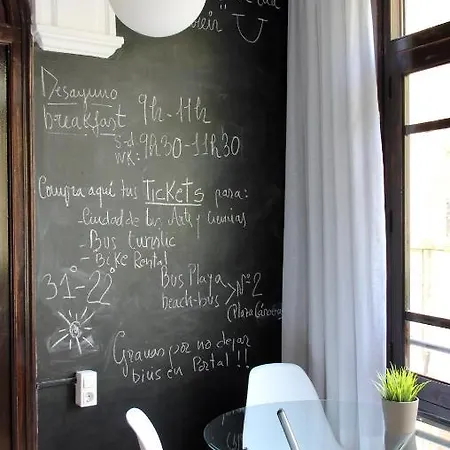 Desayuno 9h-11h
breakfast S-d
WK: 9h30-11h30
Compra aquí tus TICKETS para:
Ciudad de las Arts y Ciencias
- Bus turistic
- Bike Rental
31°-22°
Bus Playa
beach-bus > Nº 2
Gracias por no dejar
bius en Portal!!